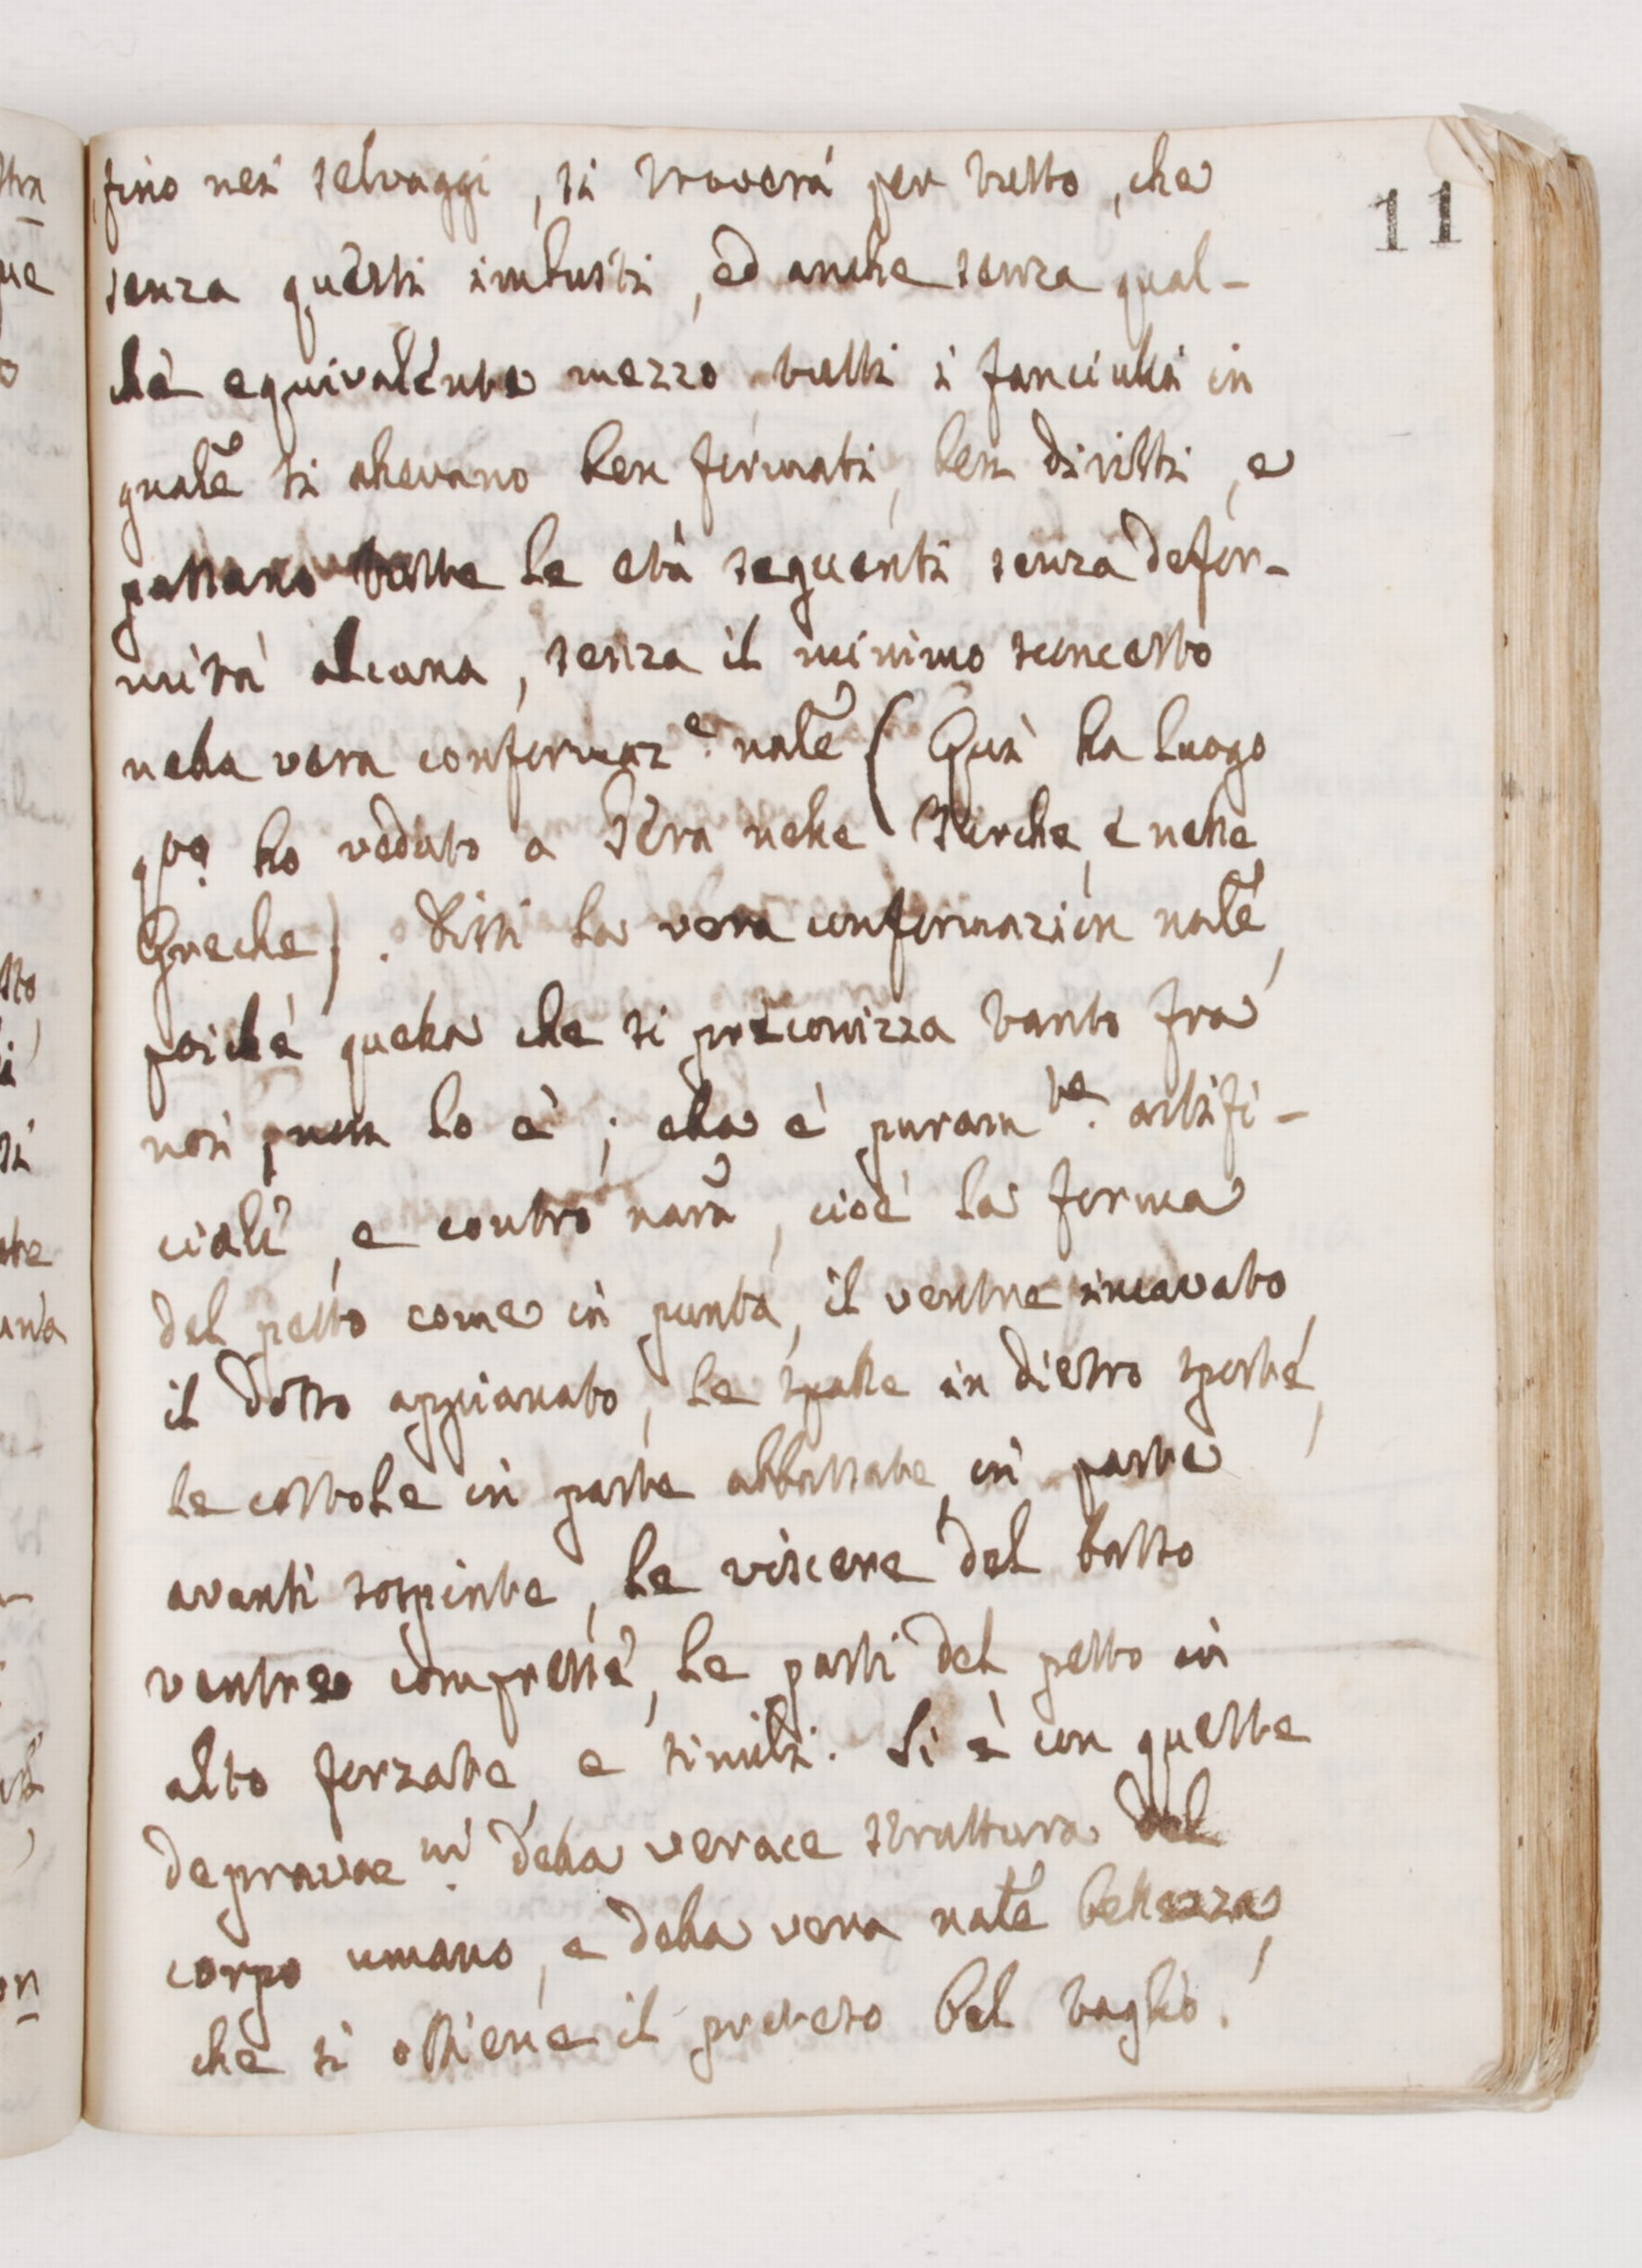 11
fino nei selvaggi, si troverà per tutto, che
senza questi imbusti, ed anche senza qual-
che equivalente mezzo tutti i fanciulli in
gnãle si allevano ben formati, ben diritti, e
passano tutte le età seguenti senza defor-
mità alcuna, senza il minimo sconcerto
nella vera conformaz.e nãle (Quì ha luogo
q.to ho veduto a Pera nelle Turche, e nelle
Greche). Dissi la vera conformazion nãle,
poichè quella che si preconizza tanto fra
noi non lo è; ella è puram.te artifi-
ciale, e contro nãra, cioè la forma
del petto come in punta, il ventre incavato,
il dosso appianato, le spalle in dietro sporte,
le costole in parte abbassate, in parte
avanti sospinte, le viscere del basso
ventre compresse, le parti del petto in
alto forzate, e simili. Si è con queste
depravae.ni della verace struttura del
corpo umano, e della vera nãle bellezza,
che si ottiene il preteso bel taglio.